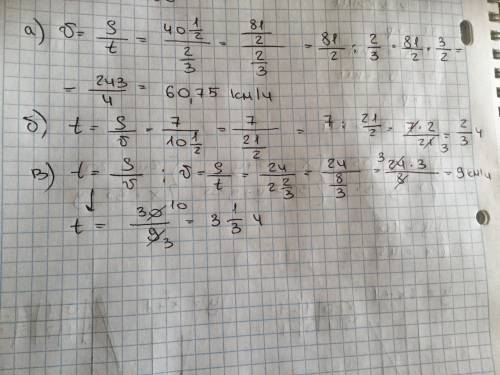 а) v = S/t = 40 1/2 / 2/3 = 81/2 / 2/3 = 81/2 : 2/3 = 81/2 · 3/2 =
= 243/4 = 60,75 км/ч
б) t = S/v = 7 / 10 1/2 = 7 / 21/2 = 7 : 21/2 = 7·2/21 3 = 2/3 ч
в) t = S/v ; v = S/t = 24 / 2 2/3 = 24 / 8/3 = 3 24·3/8 = 9 км/ч
↓
t = 30 10 / 9 3 = 3 1/3 ч